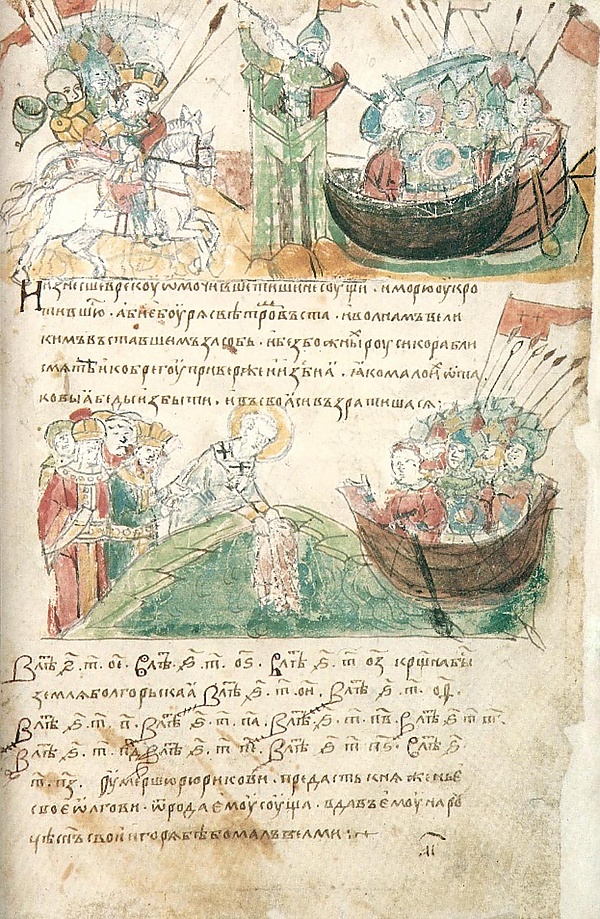 изнесшевреколуѡмочивше тишинесоущи . иморюоукро
тившю . абиебоурѧсвѣтромвъста . иволнамъвели
кимъвъставшемъзасобь . ибезбожныроусикорабли
смѧтеикберегоуприверженизбиа . ꙗкомалоиѿта
ковыабедыизбыти . ивъсвоѧсивъзратишасѧ :
Влѣⷮ ҂ѕ . т . ое . Влѣⷮ ҂ѕ . т . оѕ . Влѣⷮ ҂ѕ . т . оз крщⷭнабы
землѧболгорьскаа Влѣⷮ ҂ѕ . т . ои . Влѣⷮ ҂ѕ . т . оѳ .
Влѣⷮ ҂ѕ . т . п . Влѣⷮ ҂ѕ . т . па . Влѣⷮ ҂ѕ . т . пв . Влѣⷮ ҂ѕ т пг .
Влѣⷮ ҂ѕ . т . пд . Влѣⷮ ҂ѕ . т . пе . Влѣⷮ ҂ѕ т пѕ . Влѣⷮ ҂ѕ .
т . пз . оумершюрюрикови . предасть кнѧженье
своеѡлгови . ѿродаемоусоуща . вдавъемоунароу
цѣснъсвоиигорѧбѣбомалъвелми :